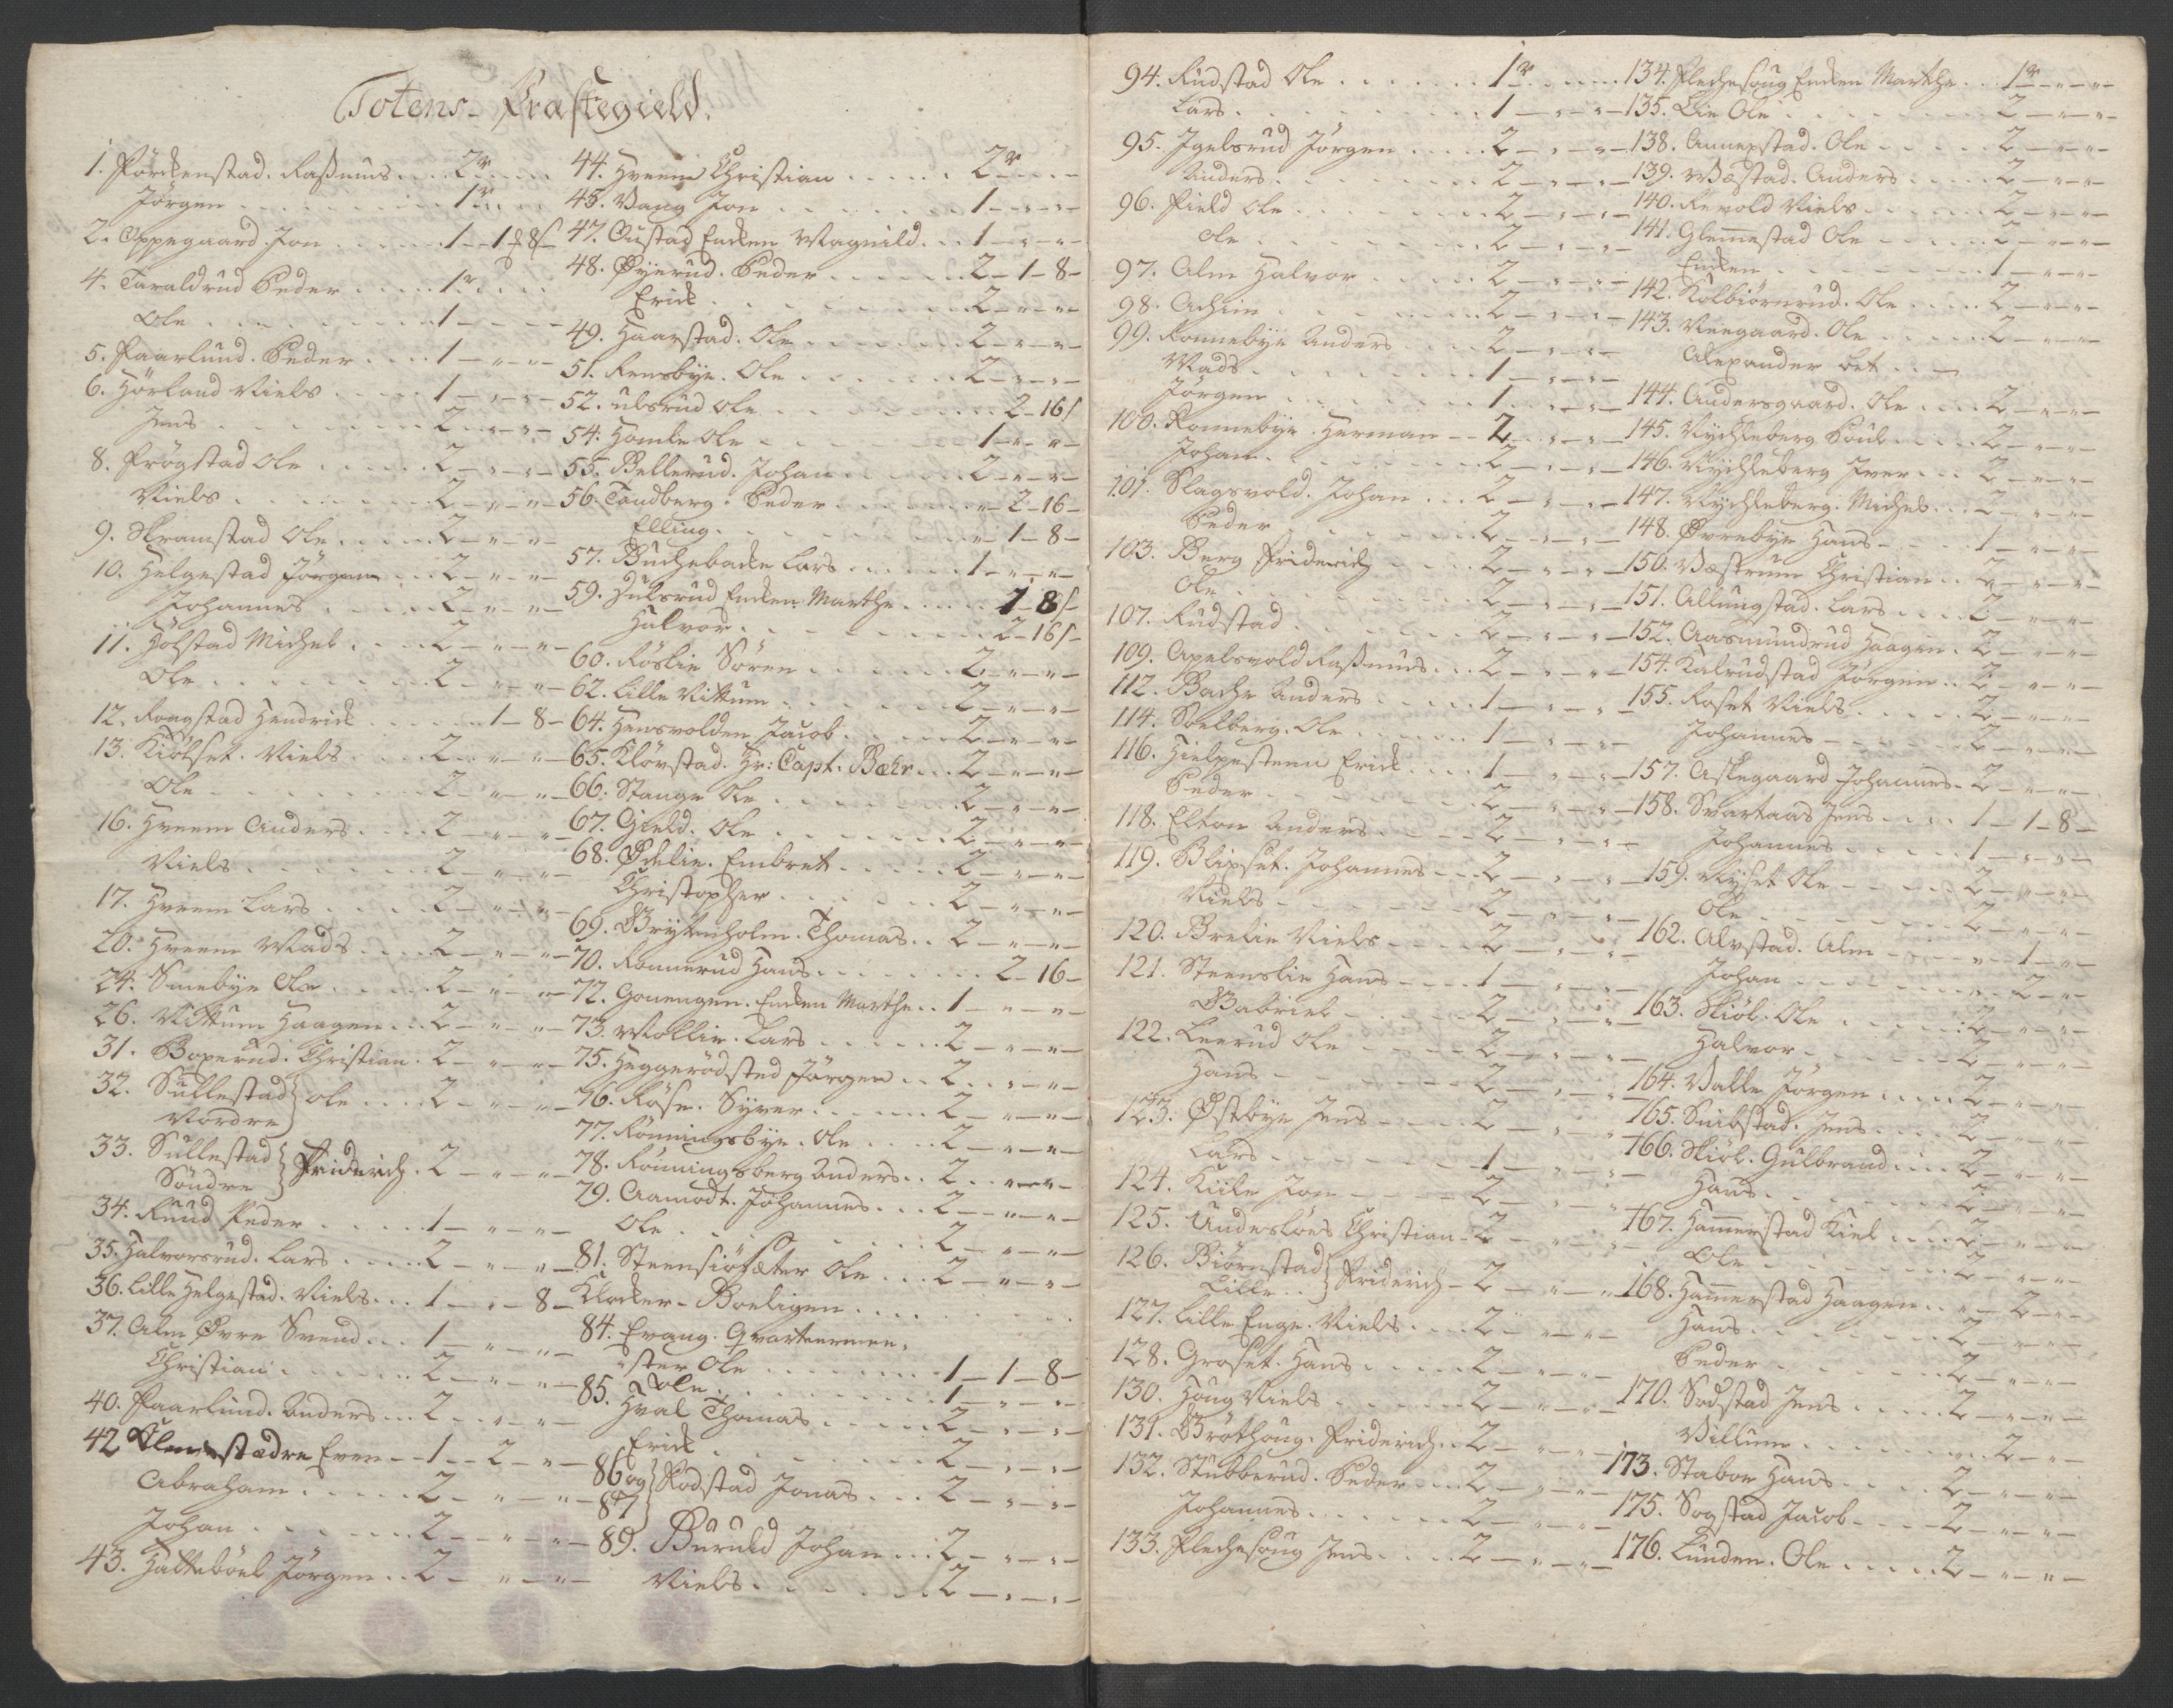 Totens Præstegield.
1. Pörckenstad. Rasmus . . . 2r . . .
Jörgen . . . . . 1r . . .
2. Oppegaard Jon . . . . 1-1 8s
4. Taraldrud Peder . . . . 1r . .
Ole . . . . . . 1 - - -
5. Paarlund. Peder . . . 1 - " -
6. Hörland Niels . . . . 1 - " -
Jens . . . . . . 2 - " -
8. Frögstad Ole . . . . . 2 - " -
Niels . . . . . . 2 - " -
9. Skramstad Ole . . . . . 2 - " -
10. Helgestad Jörgen . . . 2 - " -
Johannes . . . . . 2 - " -
11. Hölstad Michel . . . . 2 - " -
Ole . . . . . . . 2 - " -
12. Rongstad Hendrick . . . . . 1 - 8 -
13. Kiölset. Niels . . . . 2 - " -
Ole . . . . . . . 2 - " -
16. Hveem Anders . . . . 2 - " -
Niels . . . . . . 2 - " -
17. Hveem Lars . . . . 2 - " -
20. Hveem Mads . . . . 2 - " -
24. Smebye Ole . . . . . 2 - " -
26. Vittum Haagen . . . 2 - " -
31. Boxerud. Christian . 2 - " -
32. Sullestad } Ole . . . . 2 - " -
Nordre
33. Sullestad } Friderich . 2 - " -
Söndre
34. Ruud Peder . . . . . 1 - " -
35. Halvorsrud. Lars . . . . . 2 - " -
36. Lille Helgestad. Niels . . . 1 - " - 8 -
37. Alm Övre Svend . . . 1 - " -
Christian . . . . . . 2 - " -
40. Paarlund. Anders . . . 2 - " -
42 Even - - 1 - - 2 - " -
Abraham . . . . . 2 - " -
Johan . . . . . . . 2 - " -
43. Hatteböel Jörgen . . 2 - " -
44. Hveem Christian . . . . . 2r . . .
45. Vang Jon . . . . . . . 1 - " -
47. Gustad Encken Magnild . . . 1 - " -
48. Öyerud. Peder . . . . . . 2 - 1 - 8 -
Erick . . . . . . . 2 - " -
49. Haarstad. Ole . . . . . . 2 - " -
51. Rensbye. Ole . . . . . . 2 - " -
52. Ulsrud Ole . . . . . . . . 2 - 16s
54. Homle Ole . . . . . . . 1 - " -
55. Bellerud. Johan . . . . . 2 - " -
56. Tandberg. Peder . . . . . " - 2 - 16 -
Elling . . . . . . . . " - 1 - 8 -
57. Buchebacke Lars . . . . . 1 - " -
59. Julsrud Encken Marthe . . . . 1 8s -
Halvor . . . . . . . . 2 - 16s -
60. Röslie Sören . . . . . . 2 - " -
62. Lille Vittum . . . . . . 2 - " -
64. Hensvolden Jacob . . . . 2 - " -
65. Klövstad. Hr: Capt. Bæhr . . . 2 - " -
66. Stange Ole . . . . . . 2 - " -
67. Gield. Ole . . . . . . . 2 - " -
68. Ödelie. Embret . . . . . 2 - " -
Christopher . . . . . . 2 - " -
69. Grytenholm. Thomas . . 2 - " -
70. Ronnerud Hans . . . . . . . . 2 - 16 -
72. Gonengen. Encken Marthe . . 1 - " -
73. Mollie. Lars . . . . . 2 - " -
75. Heggerödsted Jörgen . . 2 . . " -
76. Röse. Syver . . . . . 2 - " -
77. Rönningsbye. Ole . . . . 2 - " -
78. Rönningsberg Anders . . 2 . . " -
79. Aamodt. Johannes . . . 2 - " -
Ole . . . . . . . . . 2 - " -
81. Steensiösæter Ole . . . 2 - " -
Klocker-Boeligen . . . . .
84. Evang. Qvarteermes-
ster Ole . . . . . . . . 1 - 1 - 8 -
Ole . . . . . . . . 1 - " -
85. Hval Thomas . . . . . 2 - " -
Erick . . . . . . . . 2 - " -
86 og 87 } Rodstad Jonas . . . 2 - " -
89. Buruld Johan . . . 2 - " -
Niels . . . . . . . 2 - " -
94. Rudstad Ole . . . . . . . 1r . . .
Lars . . . . . . . . . 1 - " -
95. Igelsrud Jörgen . . . . . 2 - " -
Anders . . . . . . . . 2 - " -
96. Field Ole . . . . . . . . 2 - " -
Ole . . . . . . . . . 2 - " -
97. Alm Halvor . . . . . 2 - " -
98. Achim . . . . . . . . 2 - " -
99. Ronnebye Anders . . . . 2 - " -
Mads . . . . . . . . . 1 - " -
Jörgen . . . . . . . . 1 . . " -
100. Ronnebye. Herman - - 2 . . " -
Johan . . . . . . . . 2 - " -
101. Slagsvold. Johan . . . 2 - " -
Peder . . . . . . . . 2 - " -
103. Berg Friderich . . . . 2 - " -
Ole . . . . . . . . . 2 - " -
107. Rudstad . . . . . . . 2 - " -
109. Apelsvold Rasmus . . . 2 - " -
112. Bache Anders . . . . . 1 - " -
114. Soelberg. Ole . . . . . . 1 - " -
116. Hielpesteen Erick . . . . 1 - " -
Peder . . . . . . . . 2 - " -
118. Elton Anders . . . . . 2 - " -
119. Blixset. Johannes - - - 2 - " -
Niels . . . . . . . . 2 - " -
120. Brelie Niels . . . . . 2 - " -
121. Steenslie Hans . . . . 1 - " -
Gabriel . . . . . . . 2 - " -
122. Leerud Ole . . . . . . 2 - " -
Hans . . . . . . . . 2 - " -
123. Östbye Jens . . . . . 2 - " -
Lars . . . . . . . . 1 - " -
124. Kiile Jon . . . . . 2 - " -
125. Undeslöes Christian - 2 - " -
126. Biörnstad } Friderich - 2 - " -
Lille . .
127. Lille Enge. Niels . . . . 2 - " -
128. Groset. Hans . . . . . 2 - " -
130. Houg Niels . . . . . . 2 - " -
131. Gröthoug. Friderich . . 2 - " -
132. Stubberud. Peder . . . . 2 - " -
Johannes . . . . . . . 2 - " -
133. Flechesoug Jens . . . . 2 - " -
134. Flechesoug Encken Marthe . . . 1r - " -
135. Lie Ole . . . . . . . 2 - " -
138. Annexstad. Ole . . . . . 2 - " -
139. Wæstad. Anders . . . . 2 - " -
140. Revold Niels . . . . . . 2 - " -
141. Glemmestad Ole . . . . . 2 - " -
Encken . . . . . . . . . 1 - " -
142. Kolbiörnrud. Ole . . . . 2 - " -
143. Neegaard. Ole . . . . . 2 - " -
Alexander bet . . —
144. Andersgaard. Ole . . . . 2 - " -
145. Nychleberg Poul . . . . . 2 - " -
146. Nychleberg Iver . . . 2 - " -
147. Nychleberg. Michel . . . 2 - " -
148. Övrebye Hans . . . . 1 - " -
150. Væstrum Christian . . 2 - " -
151. Allungstad. Lars . . . . 2 - " -
152. Aasmundrud Haagen . 2 - " -
154. Kalrudstad Jörgen . . 2 - " -
155. Roset Niels . . . . . 2 - " -
Johannes . . . . . . 2 - " -
157. Askegaard Johannes - 2 - " -
158. Svartaas Jens . . . . 1 - 1 - 8 -
Johannes . . . . . . 1 - " -
159. Nyset Ole . . . . . . 2 - " -
Ole . . . . . . . . 2 - " -
162. Alvstad. Alm . . . . " - 1 - " -
Johan . . . . . . . . " . 2 - " -
163. Skiöl. Ole . . . . . . 2 - " -
Halvor . . . . . . . 2 - " -
164. Valle Jörgen . . . . . 2 - " -
165. Snibstad. Jens . . . . 2 - " -
166. Skiöl. Gulbrand . . . . 2 - " -
Hans . . . . . . . . 2 - " -
167. Hammerstad Kiel . . . . 2 - " -
Ole . . . . . . . . 2 - " -
168. Hammerstad Haagen . . " - 2 - " -
Hans . . . . . . . . 2 - " -
Peder . . . . . . . . 2 - " -
170. Sodstad Jens . . . . . 2 - " -
Villum . . . . . . . " . 2 - " -
173. Stabor Hans . . . . . 2 - " -
175. Sogstad Jacob . . . . 2 - " -
176. Lunden. Ole . . . . . 2 - " -